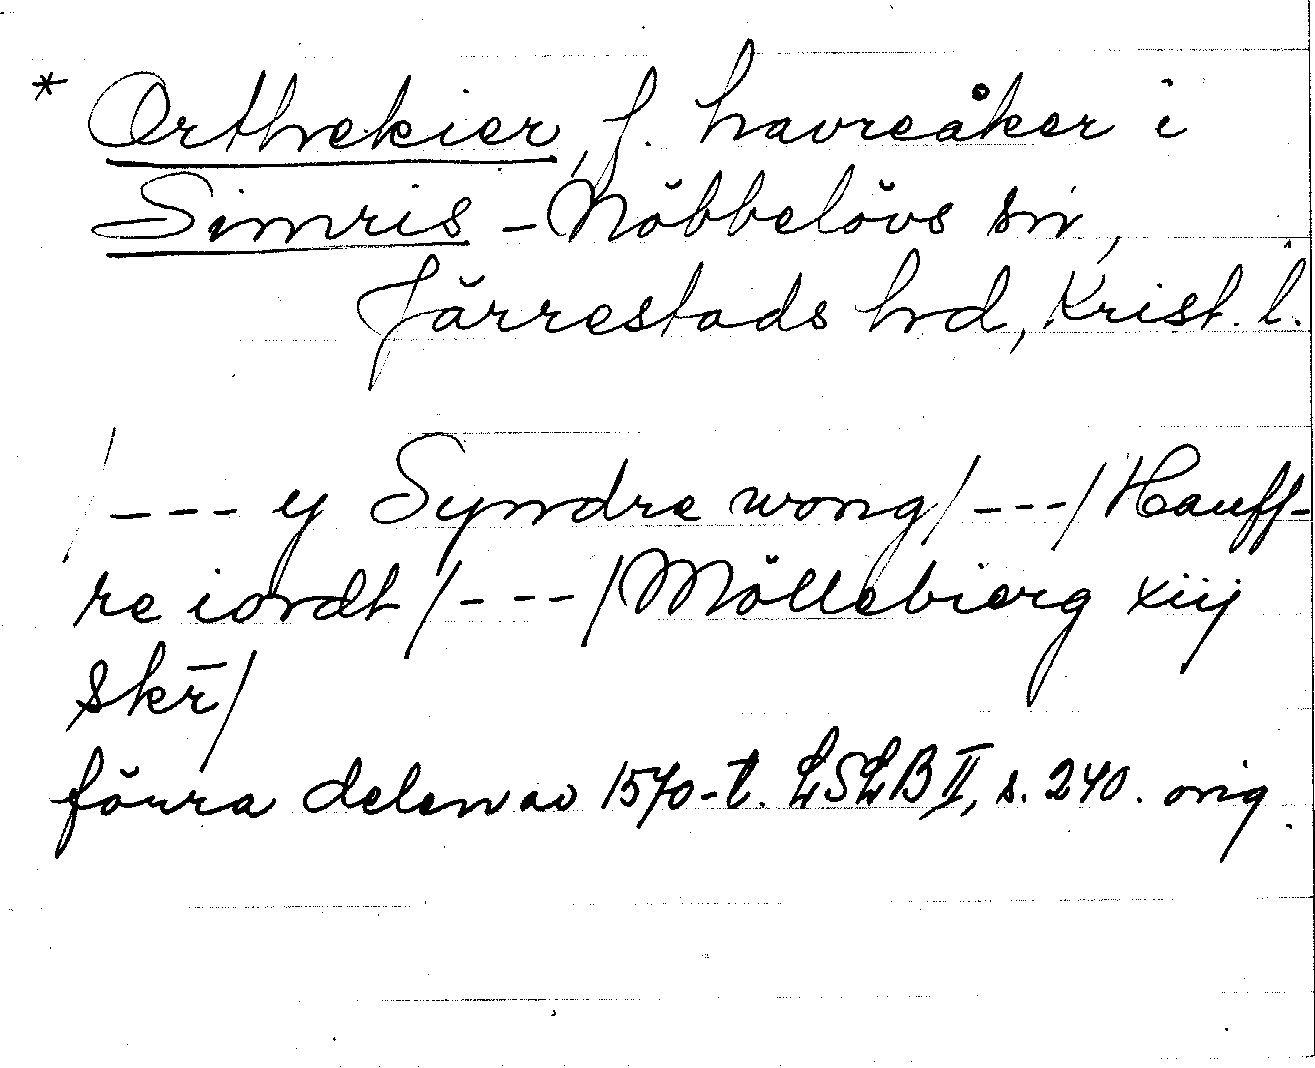 * Orthekier, f. havreåker i
Simris - Nöbbelövs sn,
Järrestads hd, Krist. l.
/--- y Syndre wong/---/Hauff-
re iordt/---/Möllebierg xiij
skr̄/
förra delen av 1570-t. LSLB II, s. 240. orig.